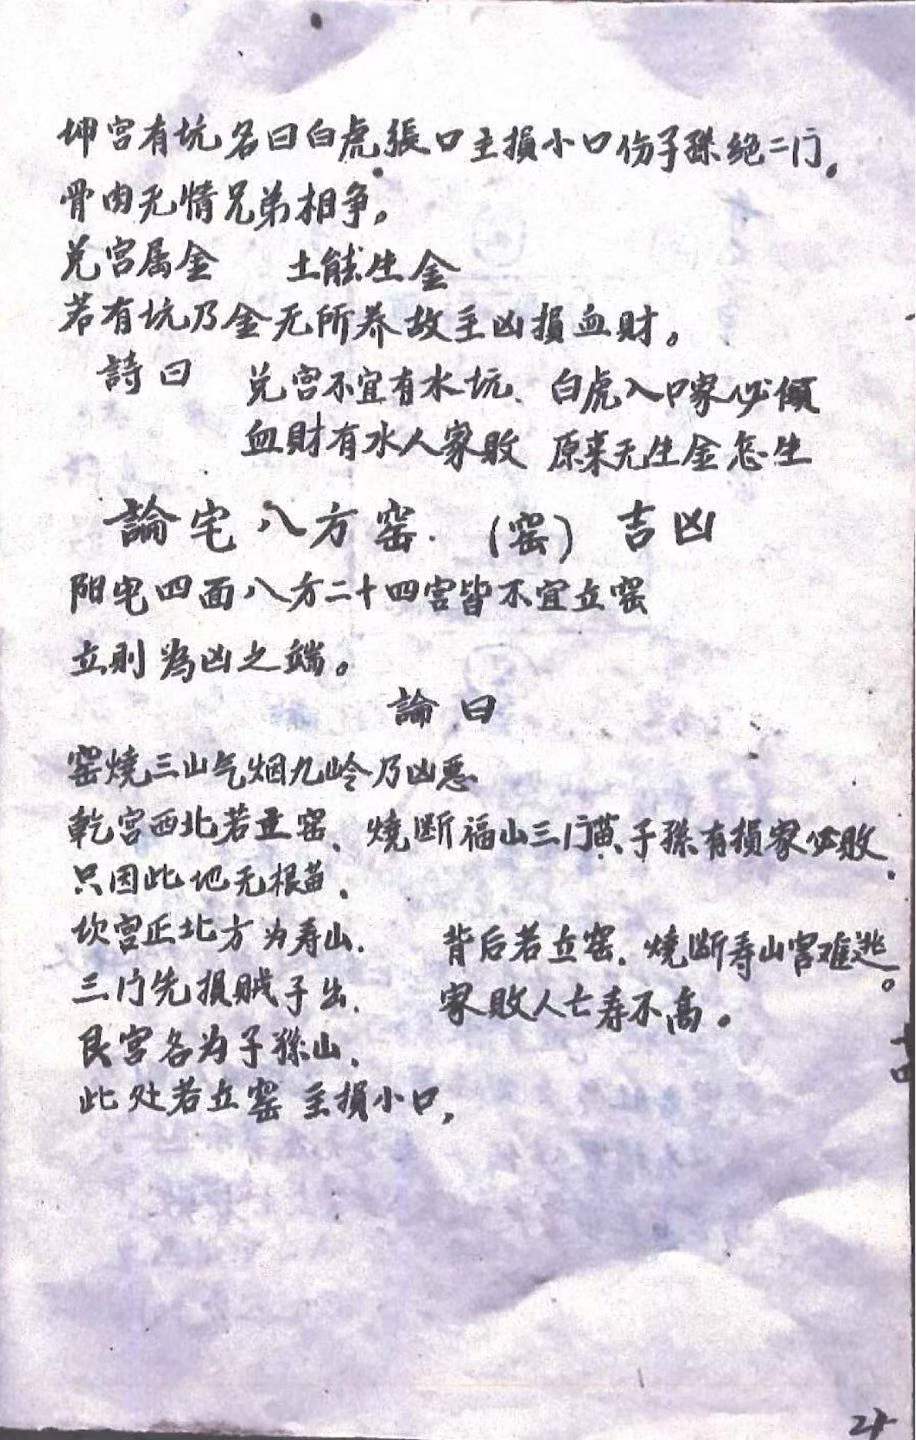 坤宫有坑名曰白虎張口主損小口伤子孫絶二门。
骨肉无情兄弟相争。
兑宫属金 土能生金
若有坑乃金无所养故主凶損血财。
詩曰 兑宫不宜有水坑、白虎入口家必傾
血財有水人家败 原来无生金怎生
論宅八方窑.(窑)吉凶
阳宅四面八方二十四宫皆不宜立窑
立則為凶之端。
論曰
窑燒三山气烟九岭乃凶恶
乾宫西北若立窑、燒断福山三门 子孫有損家必敗、
只因此地无根苗、
坎宫正北方为寿山. 背后若立窑.燒断寿山宫难逃。
三门先損賊子出. 家败人亡寿不高。
艮宫名为子孫山、
此处若立窑 主損小口,
24